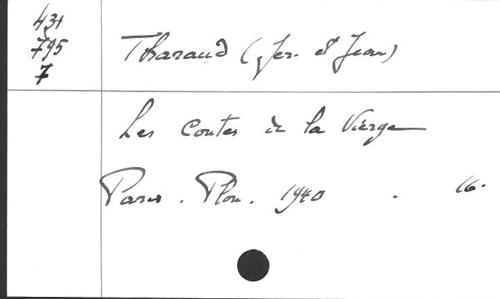 431
795
7
Tharaud (Jer. et Jean)
Les Contes de la Vierge
Paris. Plon. 1940 . 16.